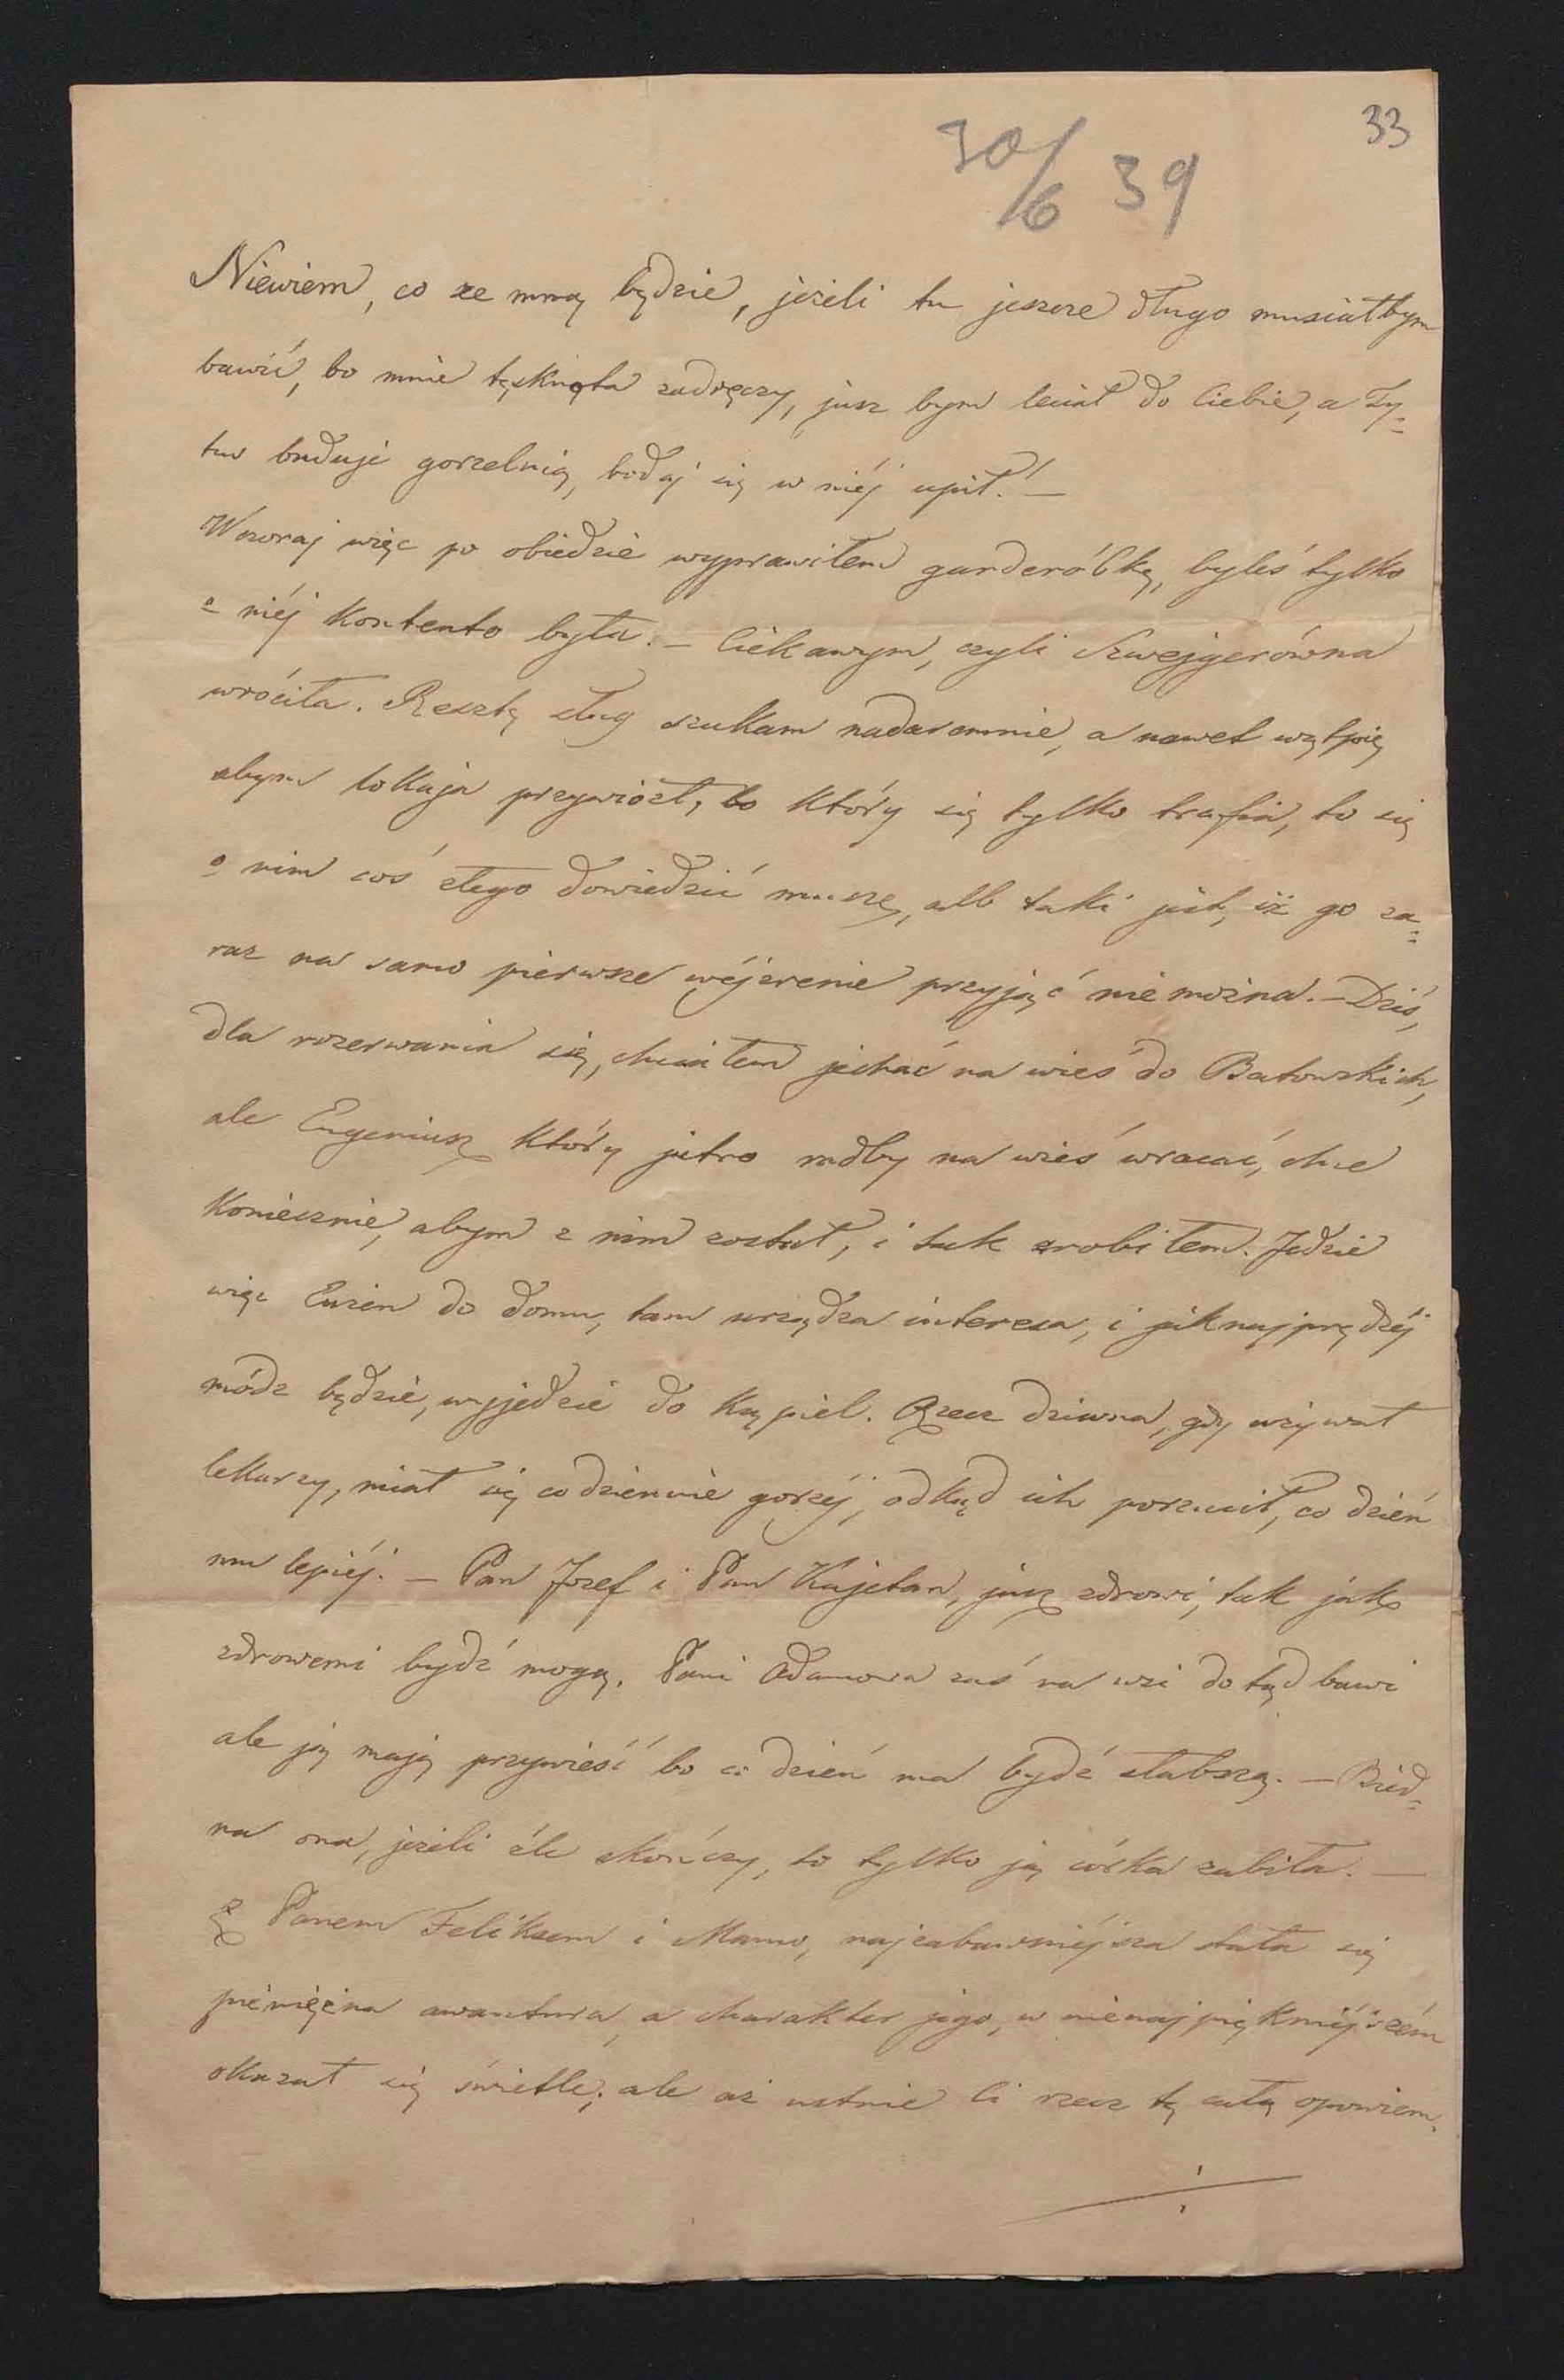 33
30/6 39
Niewiem, co ze mną będzie, jeżeli tu jeszcze długo musiałbym
bawić, bo mnie tęsknota zadręczy, jusz bym leciał do Ciebie, a Ty=
tus buduje gorzelnią, bodaj się w niéj upił! —
Wczoraj więc po obiedzie wyprawiłem garderóbkę, byleś tylko
z niéj kontento była. — Ciekawym, czyli Szwejgerówna
wróciła. Resztę sług szukam nadaremnie, a nawet wątpię
abym lokaja przywiózł, bo który się tylko trafia, to się
o nim coś złego dowiedzić muszę, alb taki jest, iż go za=
raz na samo pierwsze wéjzrenie przyjąć nie można. — Dziś,
dla rozerwania się, chciałem jechać na wieś do Batowskich,
ale Eugeniusz który jutro radby na wieś wracać, chce
koniecznie, abym z nim został, i tak zrobiłem. Jedzie
więc Eużen do domu, tam urządza interesa, i jaknajprędzéj
módz będzie, wyjedzie do kąpiel. Rzecz dziwna, gdy używał
lekarzy, miał się codziennie gorzéj, odkąd ich porzucił, co dzień
mu lepiéj. — Pan Jozef i Pan Kajetan, jusz zdrowi, tak jak
zdrowemi bydź mogą. Pani Adamowa zaś na wsi do tąd bawi
ale ją mają przywieść bo co dzień ma bydź słabszą. — Bied=
na ona, jeżeli źle skończy, to tylko ją córka zabiła. —
Z Panem Feliksem i Mamą, najzabawniéjsza stała się
pieniężna awantura, a charakter jego, w nienajpiękniéjszém
okazał się świetle; ale aż ustnie Ci rzecz tę całą opowiem.